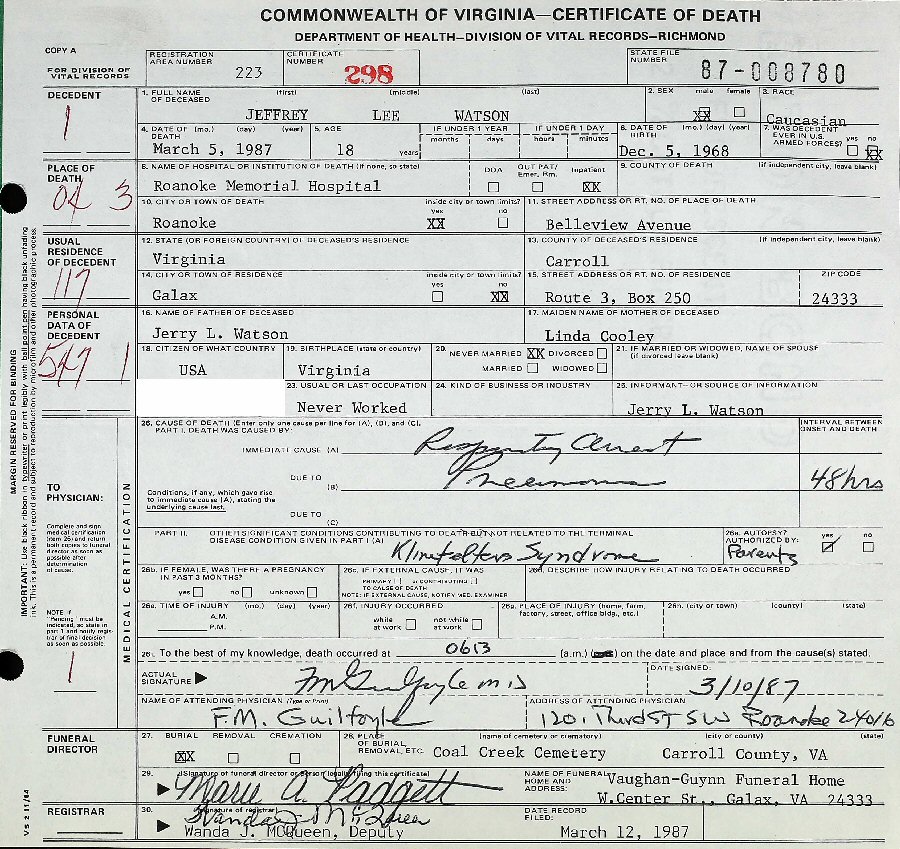 COMMONWEALTH OF VIRGINIA—CERTIFICATE OF DEATH
DEPARTMENT OF HEALTH—DIVISION OF VITAL RECORDS—RICHMOND
COPY A
FOR DIVISION OF VITAL RECORDS
REGISTRATION AREA NUMBER 223
CERTIFICATE NUMBER 298
STATE FILE NUMBER 87-008780
DECEDENT
1
1. FULL NAME OF DECEASED (first) (middle) (last)
JEFFREY LEE WATSON
2. SEX male female XX
3. RACE Caucasian
4. DATE OF DEATH (mo.) (day) (year) March 5, 1987
5. AGE 18 years
IF UNDER 1 YEAR months days
IF UNDER 1 DAY hours minutes
6. DATE OF BIRTH (mo.) (day) (year) Dec. 5, 1968
7. WAS DECEDENT EVER IN U.S. ARMED FORCES? yes no XX
PLACE OF DEATH
04 3
8. NAME OF HOSPITAL OR INSTITUTION OF DEATH (if none, so state)
Roanoke Memorial Hospital
DOA OUT PAT/ Emer. Rm. Inpatient XX
9. COUNTY OF DEATH (if independent city, leave blank)
10. CITY OR TOWN OF DEATH inside city or town limits? yes no
Roanoke XX
11. STREET ADDRESS OR RT. NO. OF PLACE OF DEATH
Belleview Avenue
USUAL RESIDENCE OF DECEDENT
117
12. STATE (OR FOREIGN COUNTRY) OF DECEASED'S RESIDENCE
Virginia
13. COUNTY OF DECEASED'S RESIDENCE (if independent city, leave blank)
Carroll
14. CITY OR TOWN OF RESIDENCE inside city or town limits? yes no
Galax XX
15. STREET ADDRESS OR RT. NO. OF RESIDENCE ZIP CODE
Route 3, Box 250 24333
PERSONAL DATA OF DECEDENT
547 1
16. NAME OF FATHER OF DECEASED
Jerry L. Watson
17. MAIDEN NAME OF MOTHER OF DECEASED
Linda Cooley
18. CITIZEN OF WHAT COUNTRY
USA
19. BIRTHPLACE (state or country)
Virginia
20. NEVER MARRIED XX DIVORCED
MARRIED WIDOWED
21. IF MARRIED OR WIDOWED, NAME OF SPOUSE (if divorced leave blank)
23. USUAL OR LAST OCCUPATION
Never Worked
24. KIND OF BUSINESS OR INDUSTRY
25. INFORMANT—OR SOURCE OF INFORMATION
Jerry L. Watson
MARGIN RESERVED FOR BINDING
IMPORTANT: Use black ribbon in typewriter or print legibly with ball point pen having black unfading
ink. This is a permanent record and subject to reproduction by microfilm and other photographic process.
TO PHYSICIAN:
Complete and sign
medical certification
(item 26) and return
both copies to funeral
director as soon as
possible after
determination
of cause.
NOTE: If
"Pending" must be
indicated, so state in
part 1 and notify regis-
trar of final decision
as soon as possible.
1
MEDICAL CERTIFICATION
26. CAUSE OF DEATH (Enter only one cause per line for (A), (B), and (C).
PART I. DEATH WAS CAUSED BY:
INTERVAL BETWEEN ONSET AND DEATH
IMMEDIATE CAUSE (A) Respiratory Arrest
DUE TO (B) Pneumonia 48hrs
Conditions, if any, which gave rise
to immediate cause (A), stating the
underlying cause last.
DUE TO (C)
PART II. OTHER SIGNIFICANT CONDITIONS CONTRIBUTING TO DEATH BUT NOT RELATED TO THE TERMINAL
DISEASE CONDITION GIVEN IN PART I (A)
Klinefelters Syndrome
26a. AUTOPSY? AUTHORIZED BY: yes no
Parents
26b. IF FEMALE, WAS THERE A PREGNANCY IN PAST 3 MONTHS?
yes no unknown
26c. IF EXTERNAL CAUSE, IT WAS
PRIMARY or CONTRIBUTING
TO CAUSE OF DEATH
NOTE: IF EXTERNAL CAUSE, NOTIFY MED. EXAMINER
26d. DESCRIBE HOW INJURY RELATING TO DEATH OCCURRED
26e. TIME OF INJURY (mo.) (day) (year)
A.M.
P.M.
26f. INJURY OCCURRED
while at work not while at work
26g. PLACE OF INJURY (home, farm, factory, street, office bldg., etc.)
26h. (city or town) (county) (state)
26i. To the best of my knowledge, death occurred at 0613 (a.m.) on the date and place and from the cause(s) stated.
ACTUAL SIGNATURE F M Guilfoyle MD
DATE SIGNED: 3/10/87
NAME OF ATTENDING PHYSICIAN (Type or Print)
F.M. Guilfoyle
ADDRESS OF ATTENDING PHYSICIAN
1201 Third St SW Roanoke 24016
FUNERAL DIRECTOR
27. BURIAL REMOVAL CREMATION
XX
28. PLACE OF BURIAL, REMOVAL, ETC. (name of cemetery or crematory) (city or county) (state)
Coal Creek Cemetery Carroll County, VA
29. (Signature of funeral director or person legally filing this certificate)
Marie A. Padgett
NAME OF FUNERAL HOME AND ADDRESS: Vaughan-Guynn Funeral Home
W.Center St., Galax, VA 24333
REGISTRAR
30. (Signature of registrar)
Wanda J McQueen
Wanda J. MCQueen, Deputy
DATE RECORD FILED: March 12, 1987
VS 2 11/84